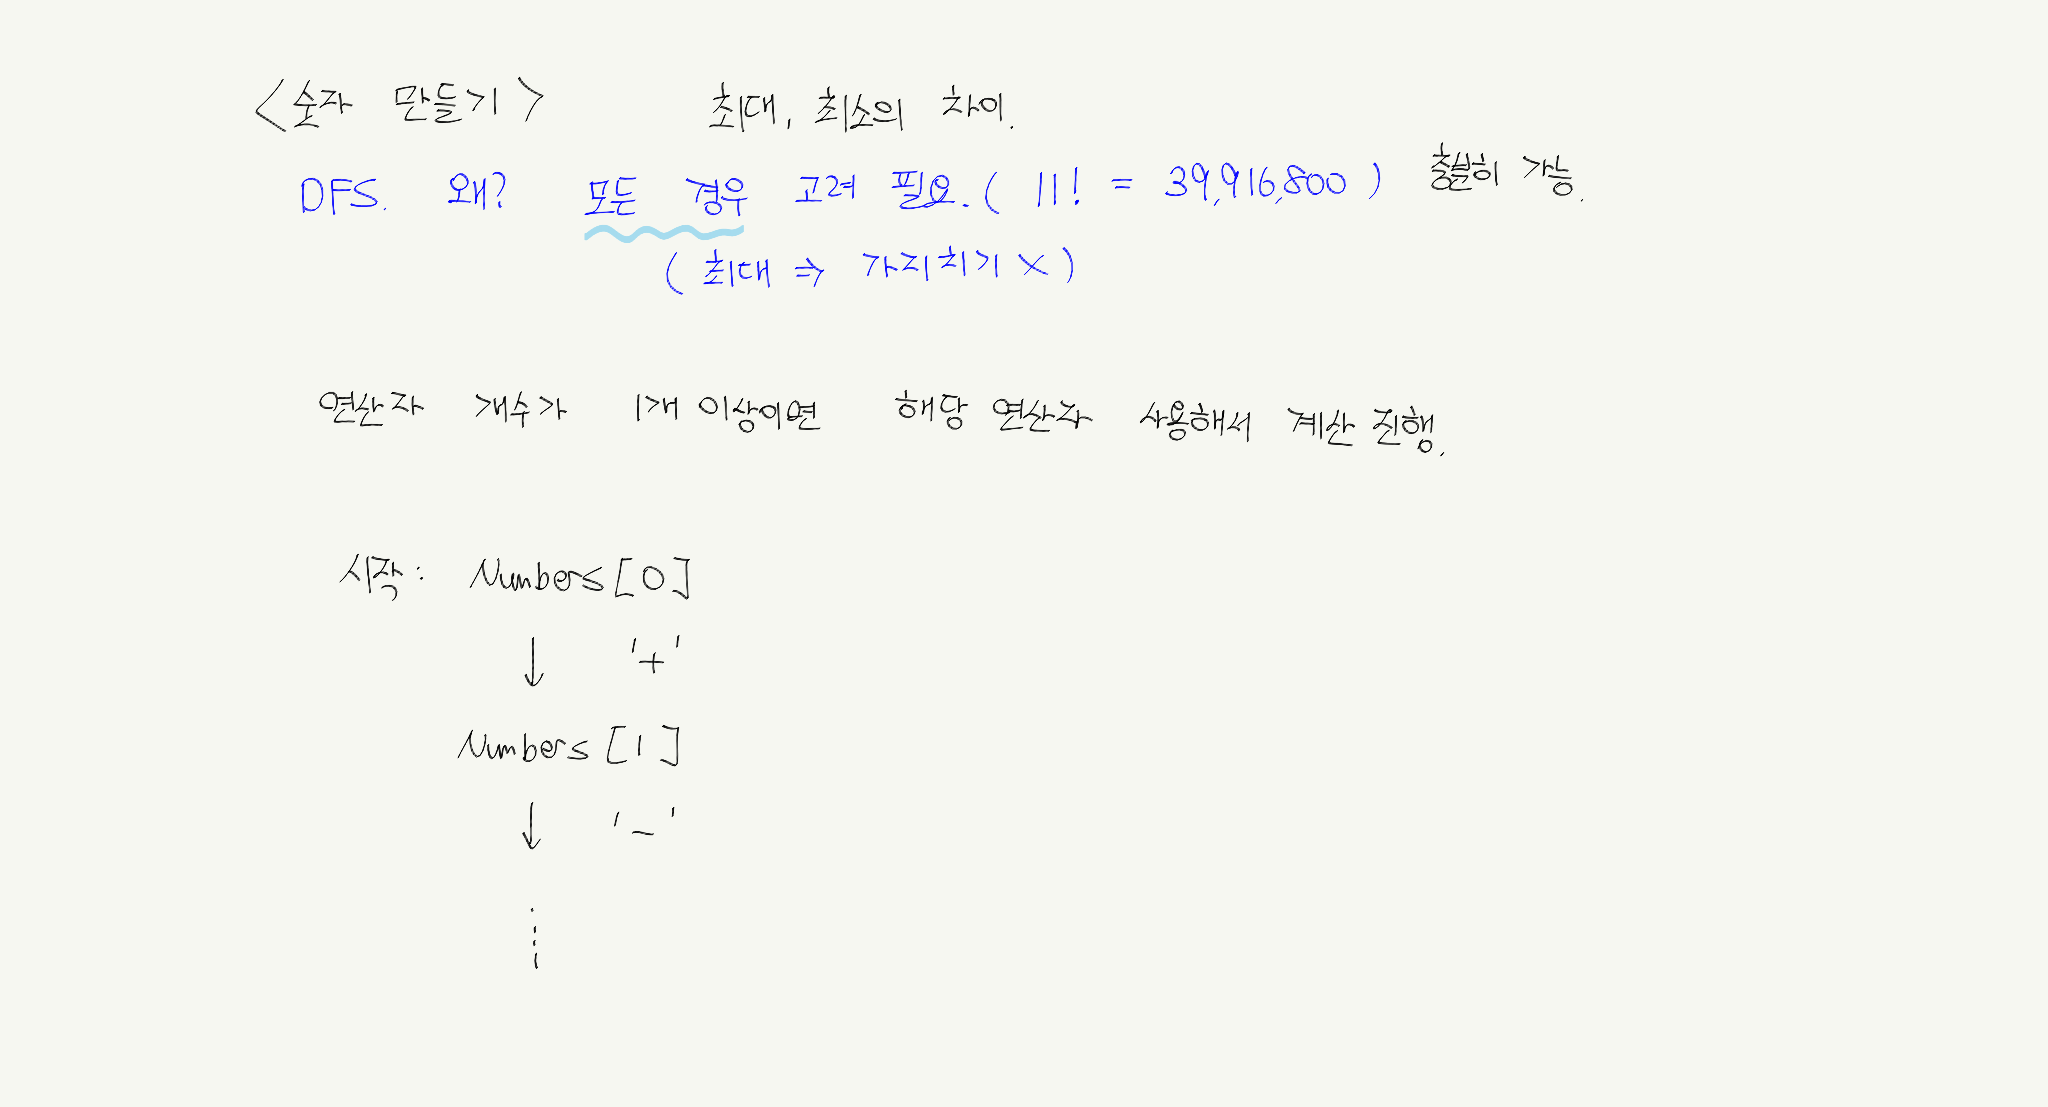 <숫자 만들기> 최대, 최소의 차이.
DFS. 왜? 모든 경우 고려 필요. ( 11! = 39,916,800 ) 충분히 가능.
( 최대 ⇒ 가지치기 X )
연산자 개수가 1개 이상이면 해당 연산자 사용해서 계산 진행.
시작: Numbers[0]
↓ '+'
Numbers [1]
↓ '-'
⋮